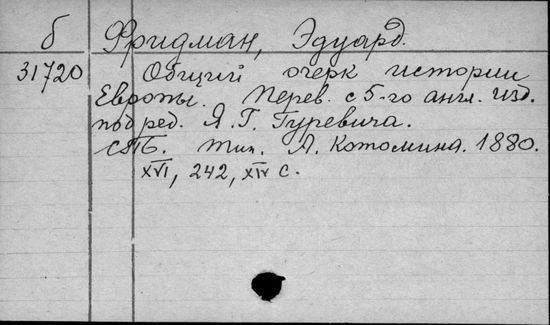 б Фридман, Эдуард.
31720 Общий очерк истории
Европы. Перев. с 5-го англ. изд.
под ред. Я. Г. Гуревича.
СПБ. Тип. А. Котомина. 1880.
XVI, 242, XIV с.